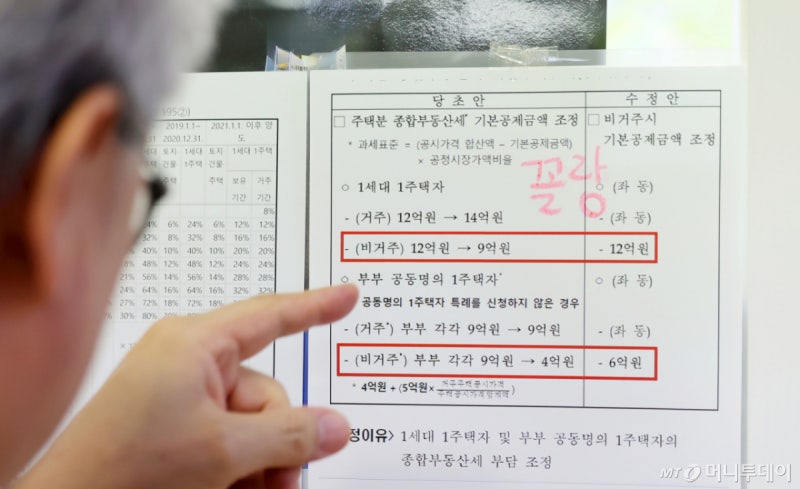 595(2))
2019.1.1~
2020.12.31.
2021.1.1. 이후 양
도
세대
1주택
토지
건물
1세대
1주택
토지
건물
1세대 1주택
주택
보유
기간
거주
기간
8%
24% 6% 24% 6% 12% 12%
32% 8% 32% 8% 16% 16%
40% 10% 40% 10% 20% 20%
48% 12% 48% 12% 24% 24%
21% 56% 14% 56% 14% 28% 28%
64% 16% 64% 16% 32% 32%
27% 72% 18% 72% 18% 36%
30% 80% 20%
당초안
수정안
□ 주택분 종합부동산세* 기본공제금액 조정
* 과세표준 = (공시가격 합산액 – 기본공제금액)
× 공정시장가액비율
□ 비거주시
기본공제금액 조정
꼴랑
○ 1세대 1주택자
○ (좌 동)
- (거주) 12억원 → 14억원
- (좌 동)
- (비거주) 12억원 → 9억원
- 12억원
○ 부부 공동명의 1주택자*
○ (좌 동)
공동명의 1주택자 특례를 신청하지 않은 경우
- (거주*) 부부 각각 9억원 → 9억원
- (좌 동)
- (비거주*) 부부 각각 9억원 → 4억원
- 6억원
* 4억원 + (5억원×거주주택공시가격
주택공시가격합계액)
정이유> 1세대 1주택자 및 부부 공동명의 1주택자의
종합부동산세 부담 조정
MT 머니투데이